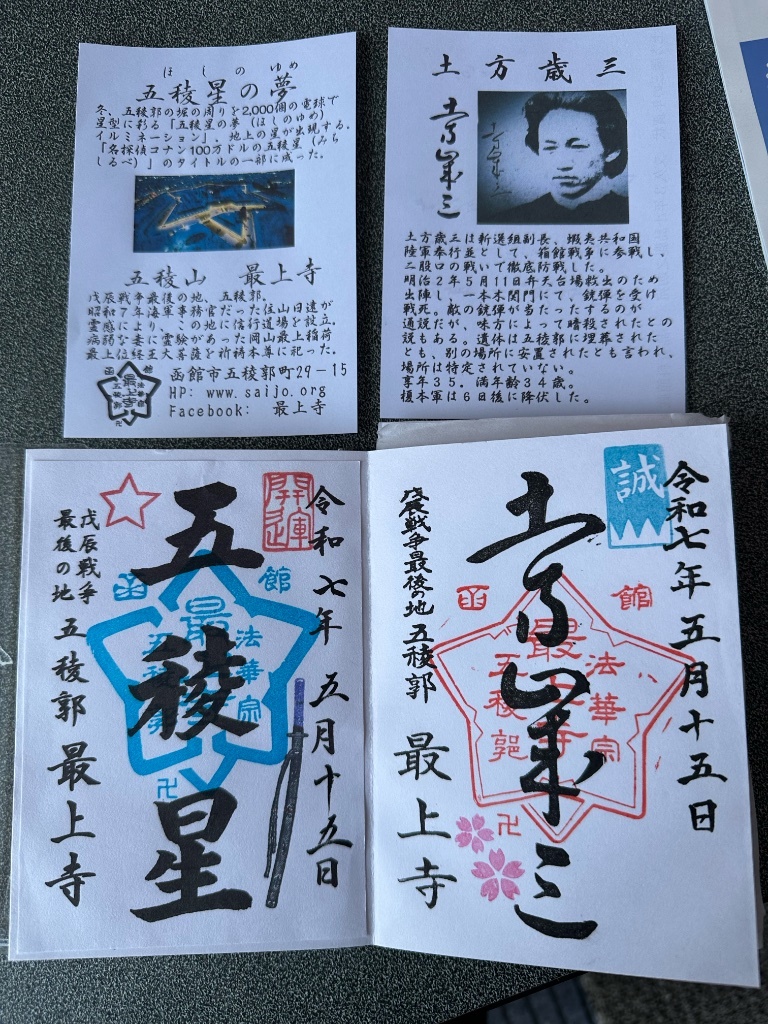 ほしのゆめ
五稜星の夢
冬、五稜郭の堀の周りを2,000個の電球で
星型に彩る「五稜星の夢(ほしのゆめ)
イルミネーション」、地上の星が出現する。
「名探偵コナン100万ドルの五稜星(みち
しるべ)」のタイトルの一部に成った。
五稜山 最上寺
戊辰戦争最後の地、五稜郭。
昭和7年海軍事務官だった住山日達が
霊感により、この地に信行道場を設立。
病弱な妻に霊験があった岡山最上稲荷
最上位経王大菩薩を祈祷本尊に祀った。
函館
法華宗
最上寺
五稜郭
卍
函館市五稜郭町29-15
HP: www.saijo.org
Facebook: 最上寺
土方歳三
土方歳三
土方歳三
土方歳三は新選組副長、蝦夷共和国
陸軍奉行並として、箱館戦争に参戦し、
二股口の戦いで徹底防戦した。
明治2年5月11日弁天台場救出のため
出陣し、一本木関門にて、銃弾を受け
戦死。敵の銃弾が当たったするのが
通説だが、味方によって暗殺されたとの
説もある。遺体は五稜郭に埋葬された
とも、別の場所に安置されたとも言われ、
場所は特定されていない。
享年35。満年齢34歳。
榎本軍は6日後に降伏した。
令和七年 五月十五日
開運
五稜星
函館
法華宗
最上寺
五稜郭
卍
戊辰戦争
最後の地
五稜郭 最上寺
令和七年五月十五日
誠
土方歳三
函館
法華宗
最上寺
五稜郭
卍
戊辰戦争最後の地 五稜郭
最上寺